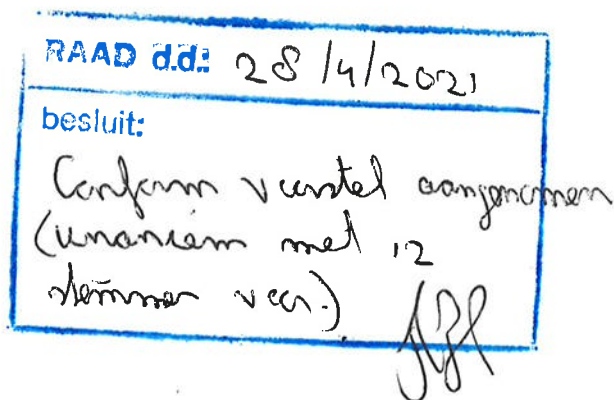 RAAD d.d.: 28/4/2021
besluit:
Conform voorstel aangenomen
(unaniem met 12
stemmen voor.)